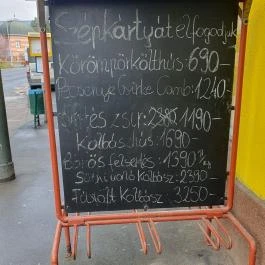 Szépkártyát elfogadjuk
Körömpörkölthús: 690-
Pecsenye Csirke Comb: 1240-
zsír: 2290 1190-
Kolbászhús: 1690-
Bőrös felsertés: 1390 Kg
Sütnivaló Kolbász: 2390-
Füstölt Kolbász: 3250-